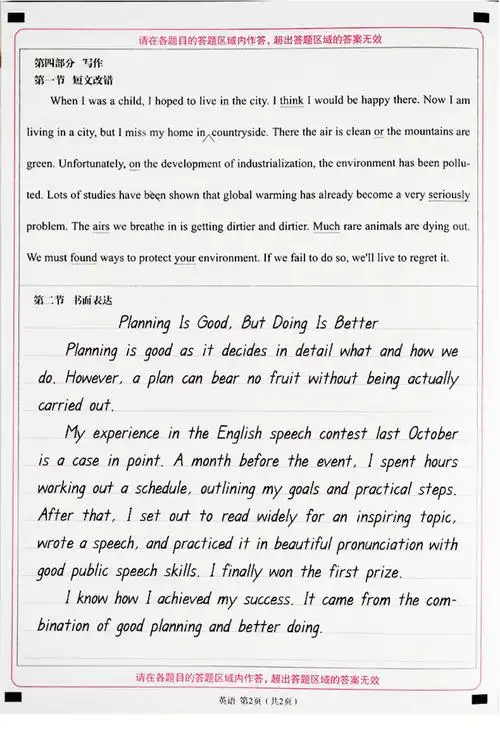 请在各题目的答题区域内作答，超出答题区域的答案无效
第四部分 写作
第一节 短文改错
When I was a child, I hoped to live in the city. I think I would be happy there. Now I am
living in a city, but I miss my home in countryside. There the air is clean or the mountains are
green. Unfortunately, on the development of industrialization, the environment has been pollu-
ted. Lots of studies have been shown that global warming has already become a very seriously
problem. The airs we breathe in is getting dirtier and dirtier. Much rare animals are dying out.
We must found ways to protect your environment. If we fail to do so, we'll live to regret it.
第二节 书面表达
Planning Is Good, But Doing Is Better
Planning is good as it decides in detail what and how we
do. However, a plan can bear no fruit without being actually
carried out.
My experience in the English speech contest last October
is a case in point. A month before the event, I spent hours
working out a schedule, outlining my goals and practical steps.
After that, I set out to read widely for an inspiring topic,
wrote a speech, and practiced it in beautiful pronunciation with
good public speech skills. I finally won the first prize.
I know how I achieved my success. It came from the com-
bination of good planning and better doing.
请在各题目的答题区域内作答，超出答题区域的答案无效
英语 第2页（共2页）